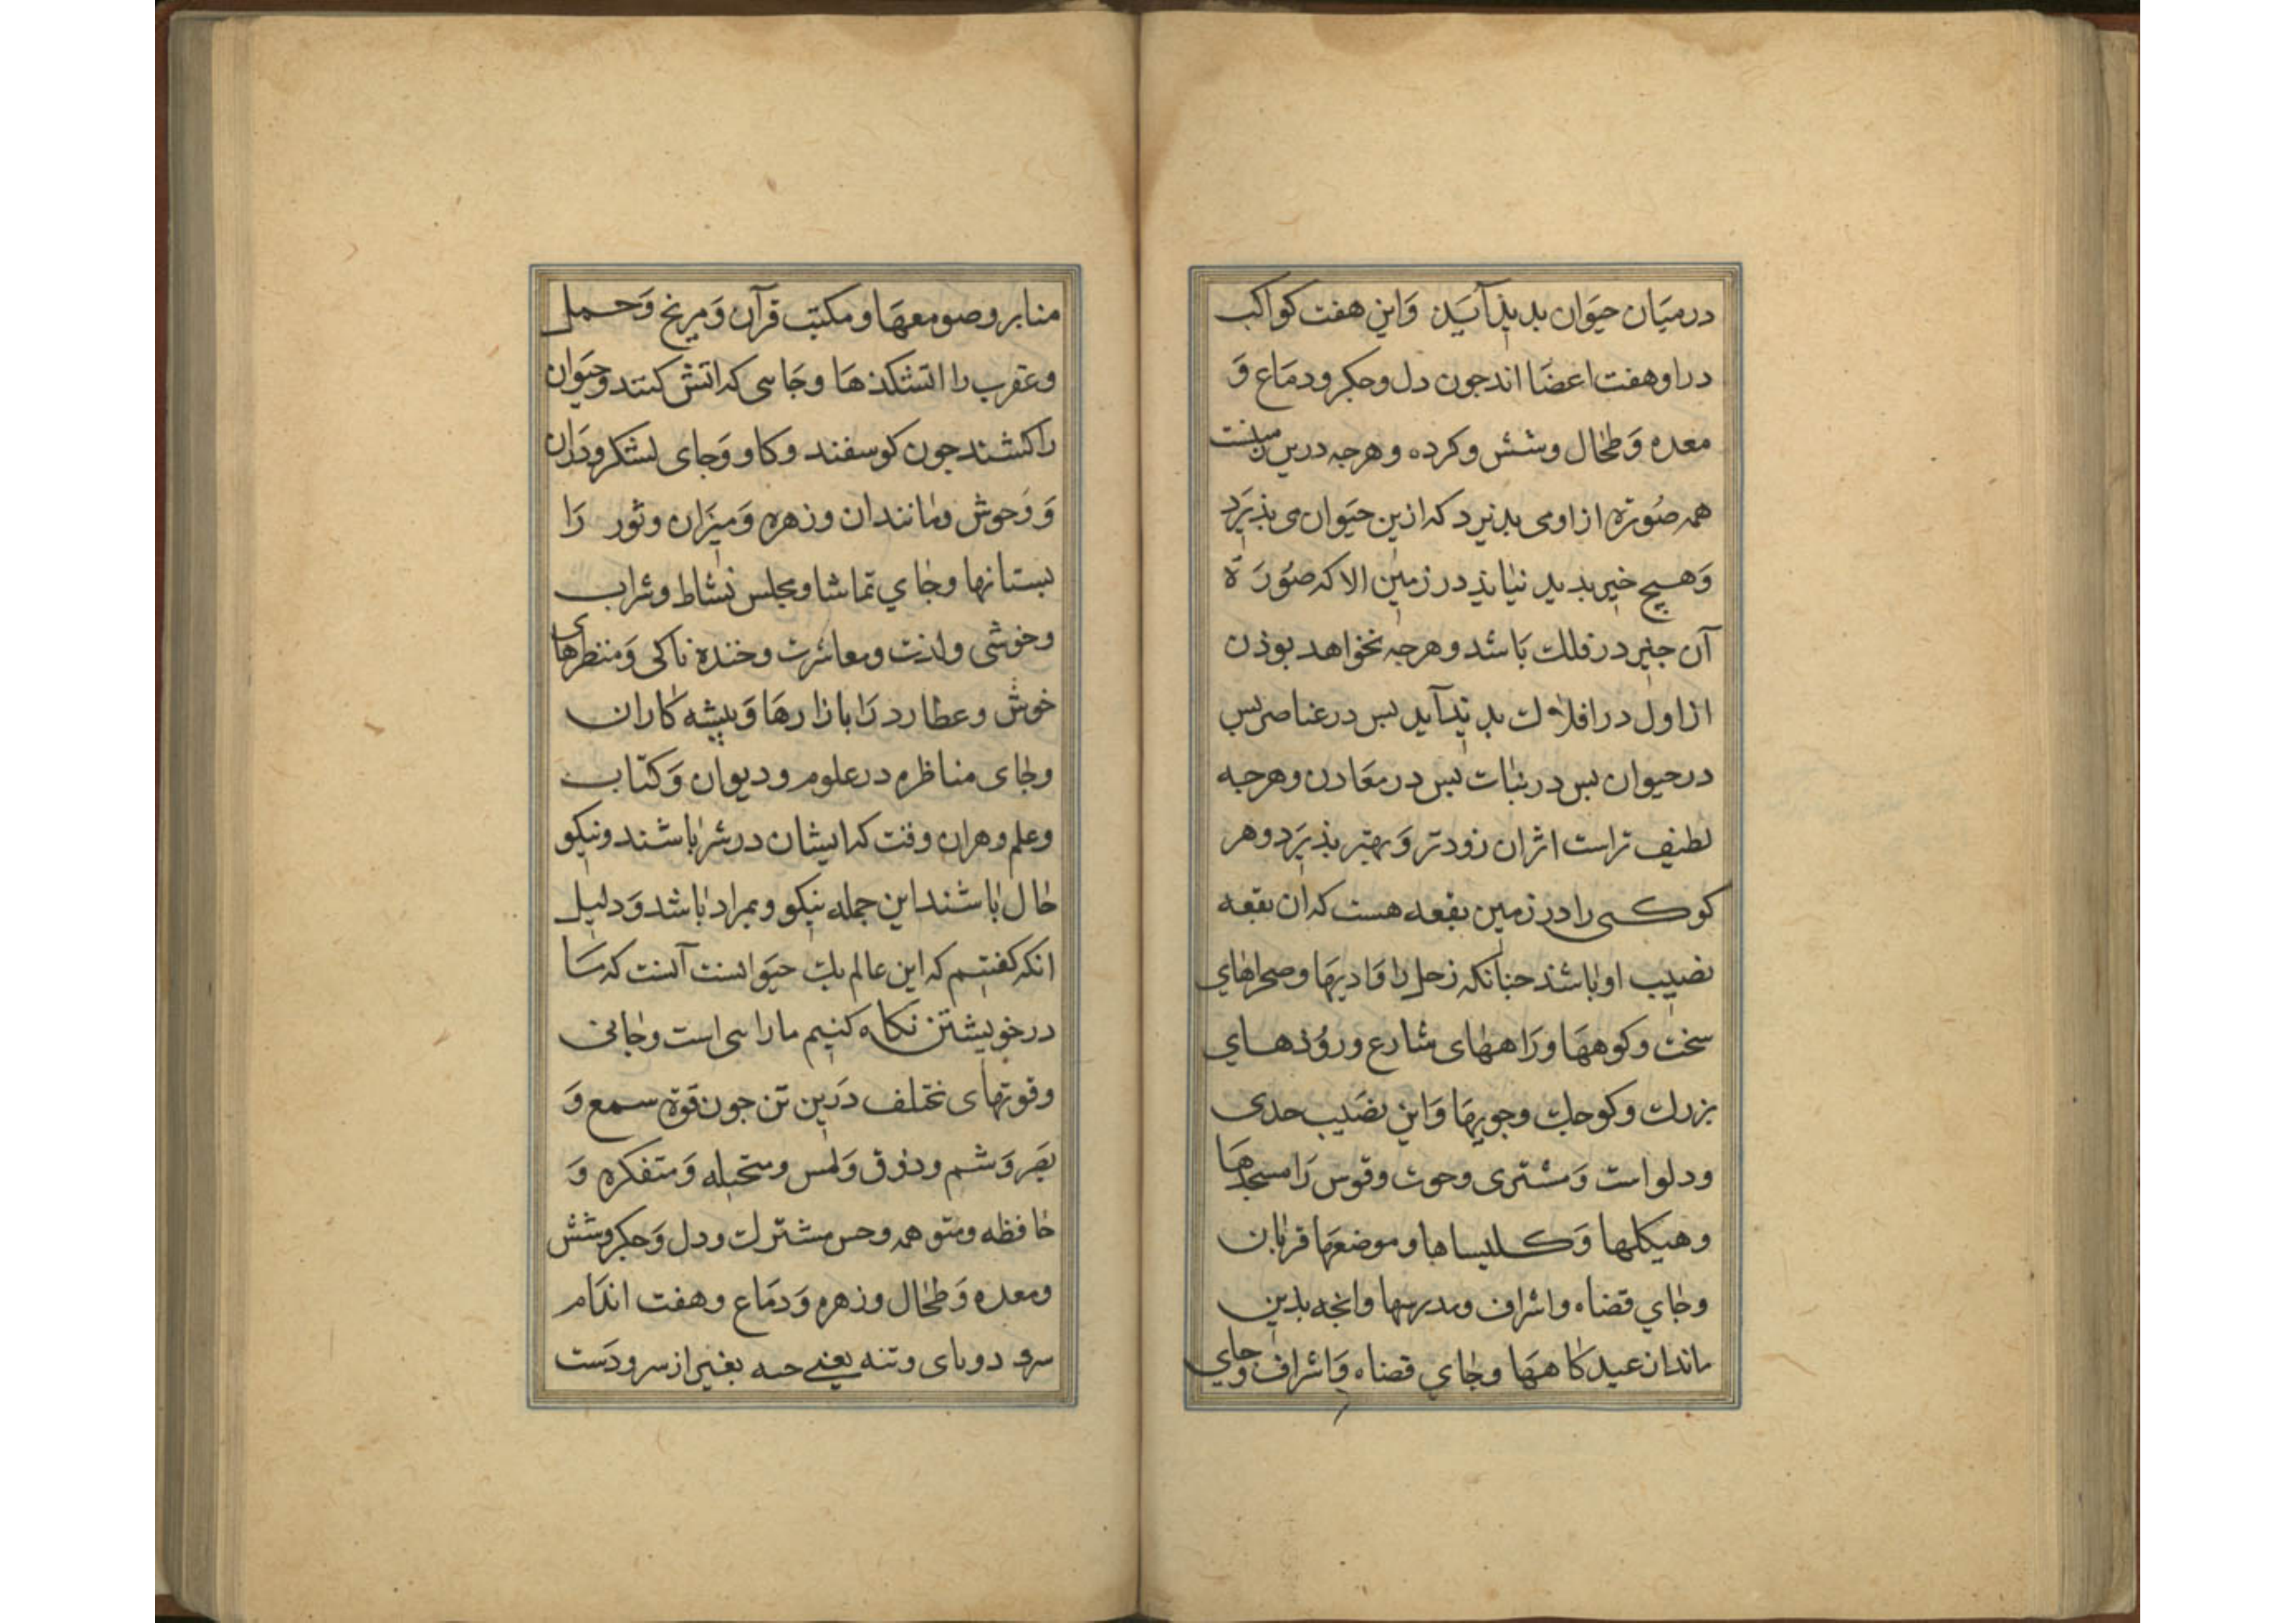 درمیَان حیَوان بدیذآیَذ وَاین هفت کواکب
دراو هفت اعضَا اند جون دل وجکر ودمَاغ وَ
معده وَطحال وشش وکرده وهرجه درین
همه صُورَة از او می بذیرد که ازین حیَوان می بذیرَد
وَهیچ جیز بدید نیاید در زمین الا که صُورَة
آن جیز در فلک بَاشد وهرجه بخواهد بوذن
از اول در افلاک بدیدآید بس در عناصر بس
در حیوان بس در نبات بس در معَادن وهرجه
لطیف تراست اثر ان زودتر وَبهتر بذیرَد وهر
کوکبی را در زمین بقعه هست که ان بقعه
نصیب او باشذ جنانکه زحل را وَادیهَا وصحراهای
سخت وکوههَا ورَاههای شارع وروُذهای
بزرک وکوجک وجویهَا وَاین نصَیب جدی
ودلو است وَمشتری وحوت وقوس رَا مسجدهَا
وهیکلها وَکلیساها وموضعهَا قربان
وجای قضاه واشراف ومدرسها وانجه بدین
ماند ان عیدکاههَا وجای قضاه وَاشراف وجای
منابر وصومعهَا ومکتب قرآن وَمریخ وَحمل
وعقرب را اتشکذهَا وجَایی که اتش کنند وحیَوان
را کشند جون کوسفند وکاو وَجای لشکر ودَدان
وَوَحوش ومانند ان وزهره وَمیزَان وثور رَا
بستانها وجای تماشا ومجلس نشاط وشراب
وخوشی ولذت ومعاشرت وخنده ناکی وَمنظرهای
خوش وعطارد رَا بازارهَا وَپیشه کاران
وجای مناظره در علوم ودیوان وَکتاب
وعلم وهران وقت که ایشان در شرَ باشند ونیکو
حال باشند این جمله نیکو وبمراد باشد وَدلیل
انکه کفتیم که این عالم یک حیَوانست آنست که مَا
درخویشتن نکاه کنیم ما را سی است وجانی
وقوتهای مختلف دَرین تن جون قوة سمع وَ
بصَر وَشم وذوق وَلمس ومتخیله وَمتفکره وَ
حافظه ومتوهمه وحس مشترک ودل وَجکر وشش
ومعده وَطحال وزهره وَدمَاغ وهفت اندَام
سرو دوبای وتنه یعنی جسه بغیر از سر ودَست